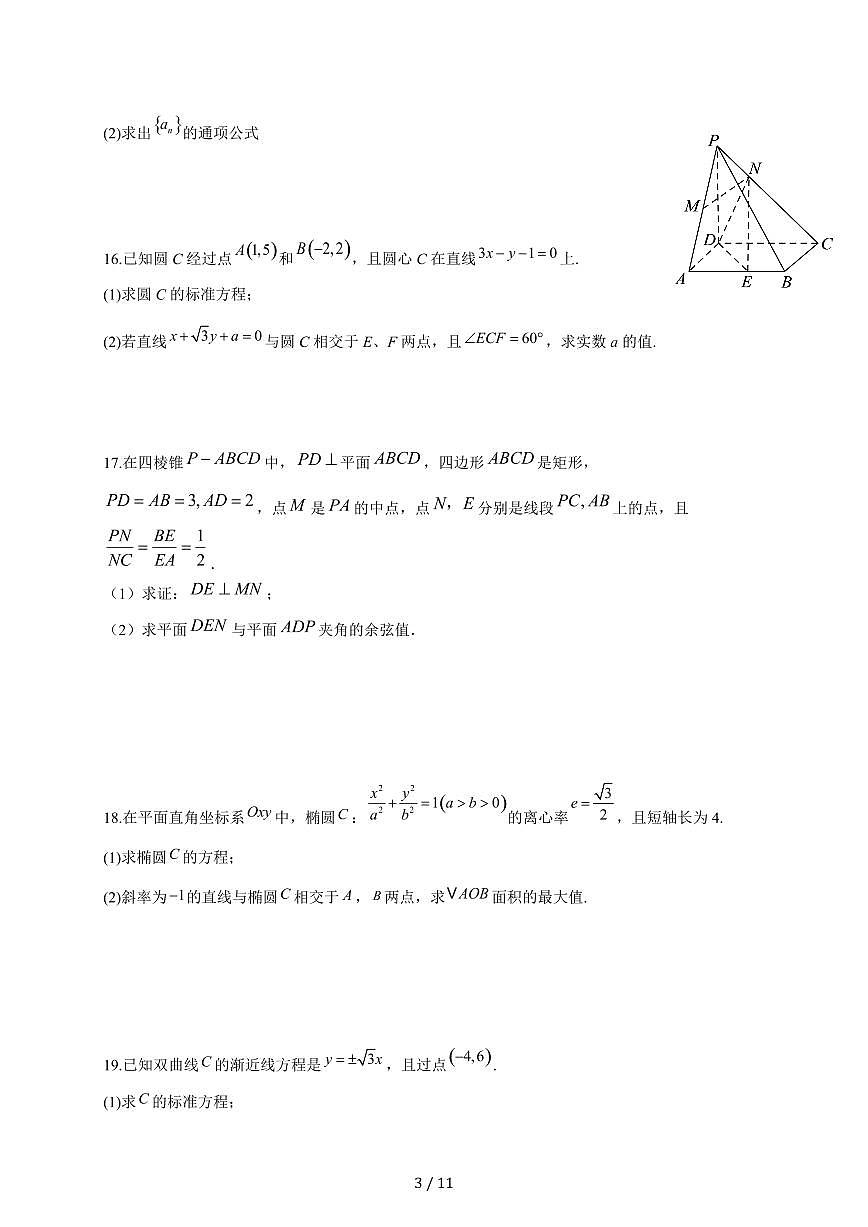 (2)求出{aₙ}的通项公式
P
N
M
D
C
A
E
B
16.已知圆 C 经过点 A(1,5) 和 B(−2,2)，且圆心 C 在直线 3x−y−1=0 上.
(1)求圆 C 的标准方程;
(2)若直线 x+√3y+a=0 与圆 C 相交于 E、F 两点，且 ∠ECF=60°，求实数 a 的值.
17.在四棱锥 P−ABCD 中， PD⊥平面 ABCD，四边形 ABCD 是矩形，
PD=AB=3, AD=2，点 M 是 PA 的中点，点 N，E 分别是线段 PC, AB 上的点，且
PN/NC=BE/EA=1/2.
（1）求证： DE⊥MN；
（2）求平面 DEN 与平面 ADP 夹角的余弦值.
18.在平面直角坐标系 Oxy 中，椭圆 C：x²/a²+y²/b²=1(a>b>0) 的离心率 e=√3/2，且短轴长为 4.
(1)求椭圆 C 的方程;
(2)斜率为 −1 的直线与椭圆 C 相交于 A，B 两点，求 VAOB 面积的最大值.
19.已知双曲线 C 的渐近线方程是 y=±√3x，且过点 (−4,6).
(1)求 C 的标准方程;
3 / 11